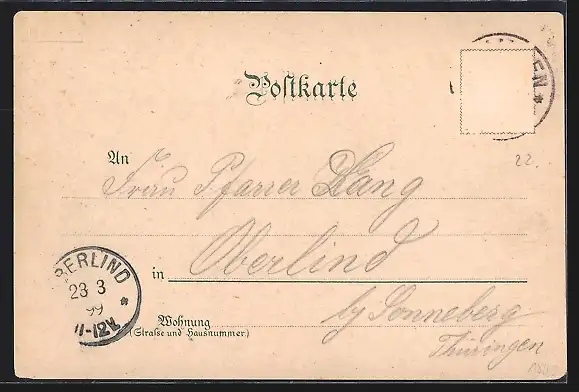 Postkarte
EN *
22.
An
Frau Pfarrer Lang
OBERLIND
23 3
99
11-12V. *
in Oberlind
Wohnung
(Straße und Hausnummer)
by Sonneberg
Thüringen